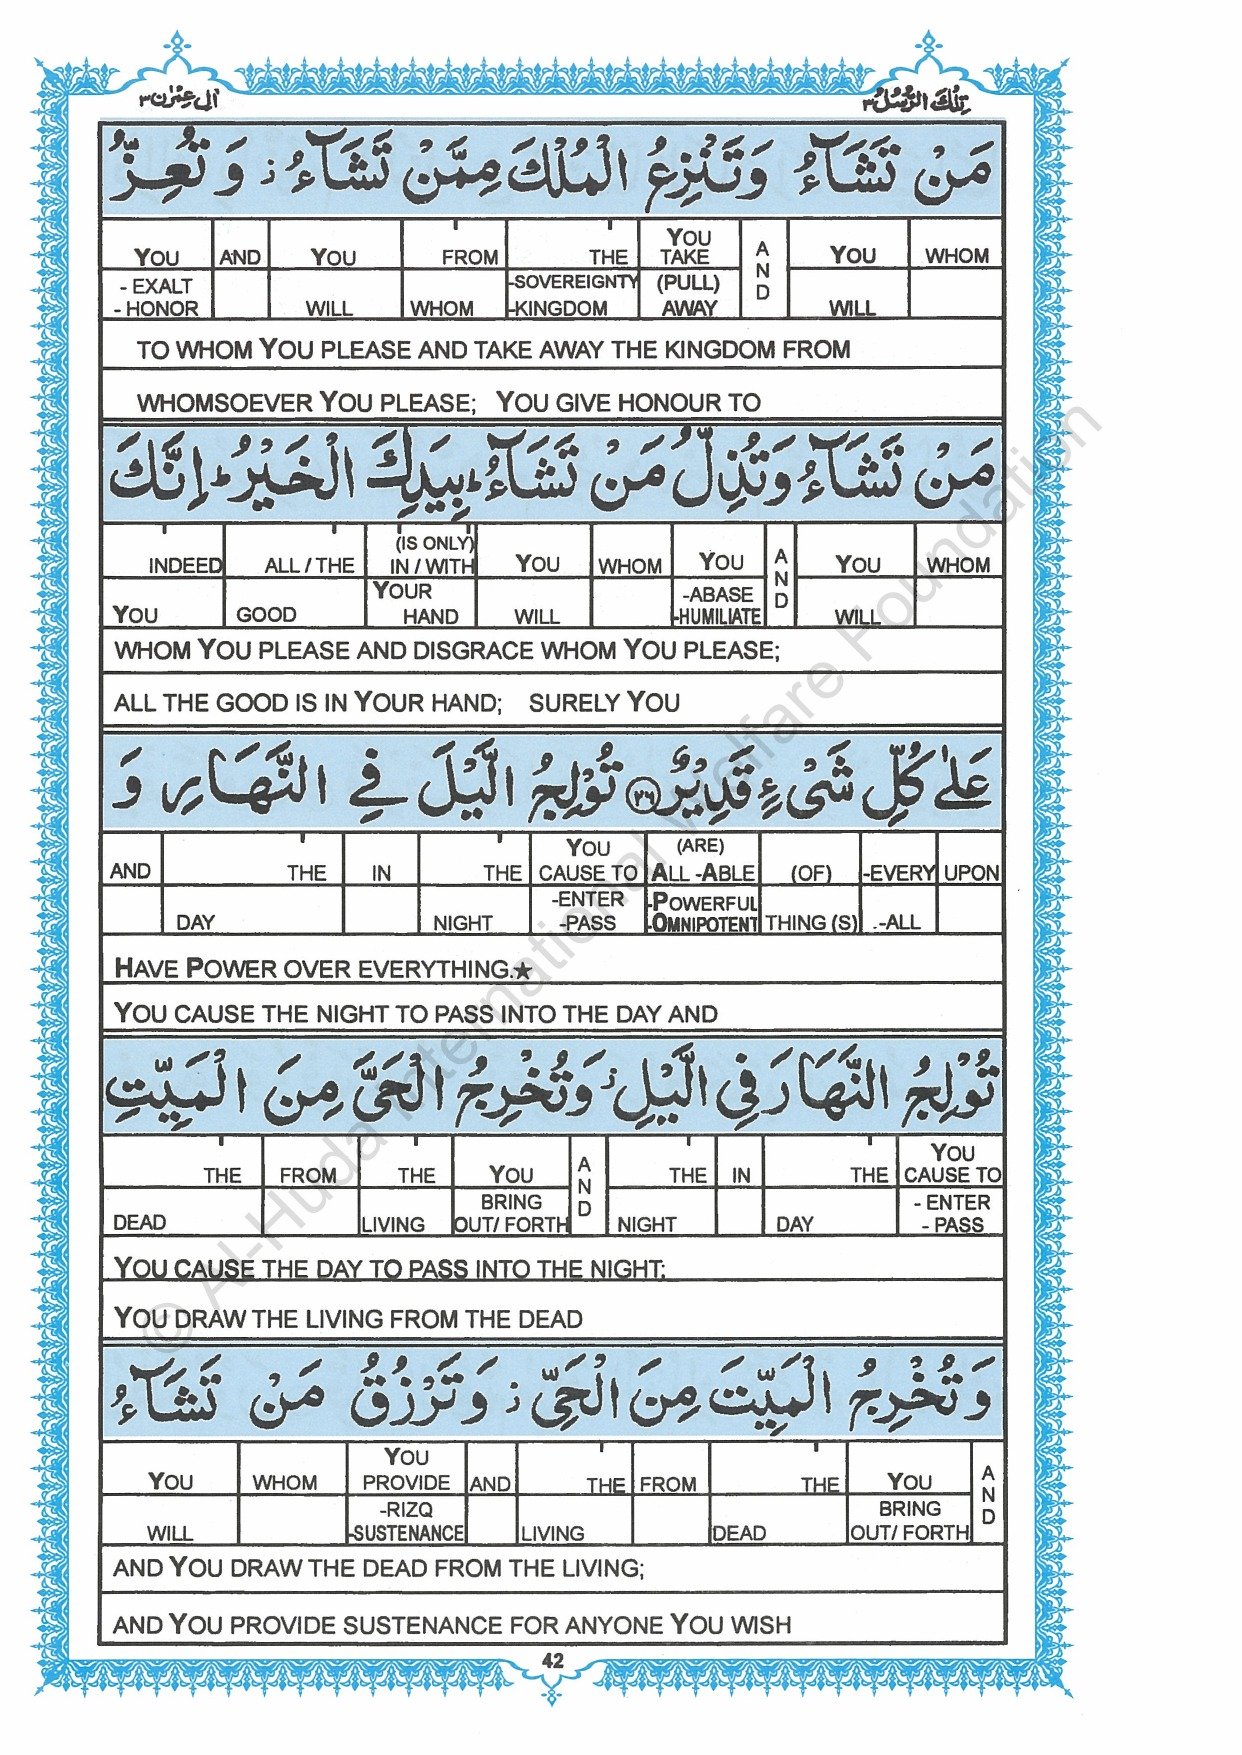 تِلْكَ الرُّسُلُ ٣
اٰلِ عِمْرٰن ٣
مَنْ تَشَآءُ وَتَنْزِعُ الْمُلْكَ مِمَّنْ تَشَآءُ ز وَ تُعِزُّ
YOU AND YOU FROM THE YOU TAKE AND YOU WHOM
- EXALT - HONOR WILL WHOM -SOVEREIGNTY -KINGDOM (PULL) AWAY WILL
TO WHOM YOU PLEASE AND TAKE AWAY THE KINGDOM FROM
WHOMSOEVER YOU PLEASE; YOU GIVE HONOUR TO
مَنْ تَشَآءُ وَتُذِلُّ مَنْ تَشَآءُ ط بِيَدِكَ الْخَيْرُ ط اِنَّكَ
INDEED ALL / THE (IS ONLY) IN / WITH YOU WHOM YOU AND YOU WHOM
YOU GOOD YOUR HAND WILL -ABASE -HUMILIATE WILL
WHOM YOU PLEASE AND DISGRACE WHOM YOU PLEASE;
ALL THE GOOD IS IN YOUR HAND; SURELY YOU
عَلٰى كُلِّ شَيْءٍ قَدِيْرٌ ٢٦ تُوْلِجُ الَّيْلَ فِي النَّهَارِ وَ
AND THE IN THE YOU CAUSE TO (ARE) ALL -ABLE (OF) -EVERY UPON
DAY NIGHT -ENTER -PASS -POWERFUL -OMNIPOTENT THING (S) .-ALL
HAVE POWER OVER EVERYTHING.★
YOU CAUSE THE NIGHT TO PASS INTO THE DAY AND
تُوْلِجُ النَّهَارَ فِي الَّيْلِ ز وَتُخْرِجُ الْحَيَّ مِنَ الْمَيِّتِ
THE FROM THE YOU AND THE IN THE YOU CAUSE TO
DEAD LIVING BRING OUT/ FORTH NIGHT DAY - ENTER - PASS
YOU CAUSE THE DAY TO PASS INTO THE NIGHT;
YOU DRAW THE LIVING FROM THE DEAD
وَ تُخْرِجُ الْمَيِّتَ مِنَ الْحَيِّ ز وَ تَرْزُقُ مَنْ تَشَآءُ
YOU WHOM YOU PROVIDE AND THE FROM THE YOU AND
WILL -RIZQ -SUSTENANCE LIVING DEAD BRING OUT/ FORTH
AND YOU DRAW THE DEAD FROM THE LIVING;
AND YOU PROVIDE SUSTENANCE FOR ANYONE YOU WISH
42
© Al-Huda International Welfare Foundation